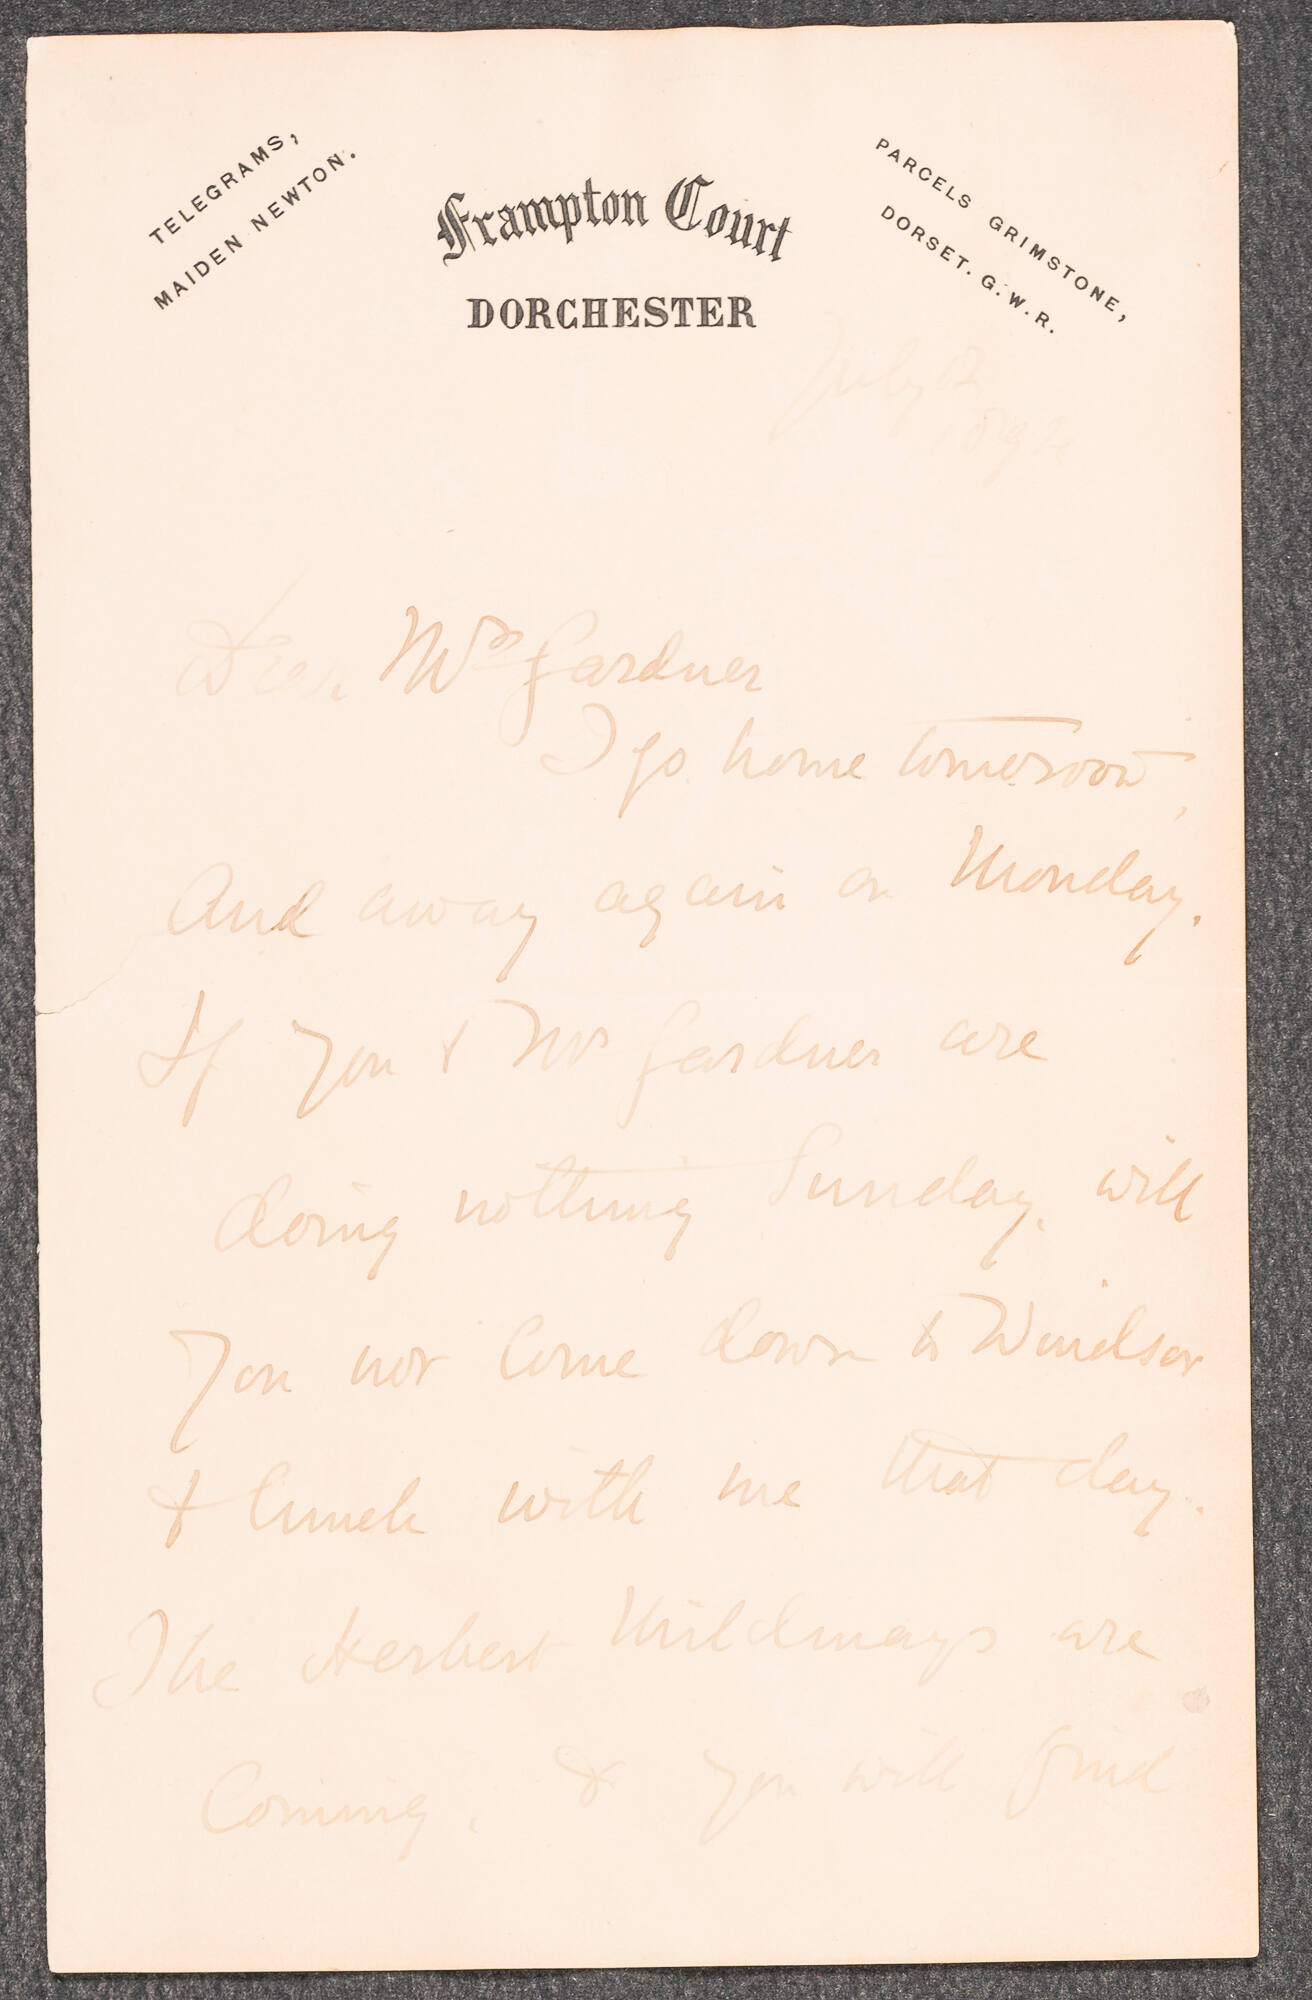 TELEGRAMS,
MAIDEN NEWTON.
Frampton Court
DORCHESTER
PARCELS GRIMSTONE,
DORSET. G.W.R.
July
1892
Dear Mrs Gardner
I go home tomorrow,
And away again on Monday.
If you & Mr Gardner are
doing nothing Sunday, will
you not come down to Windsor
& lunch with me that day.
The Herbert Mildmays are
Coming, & you will find